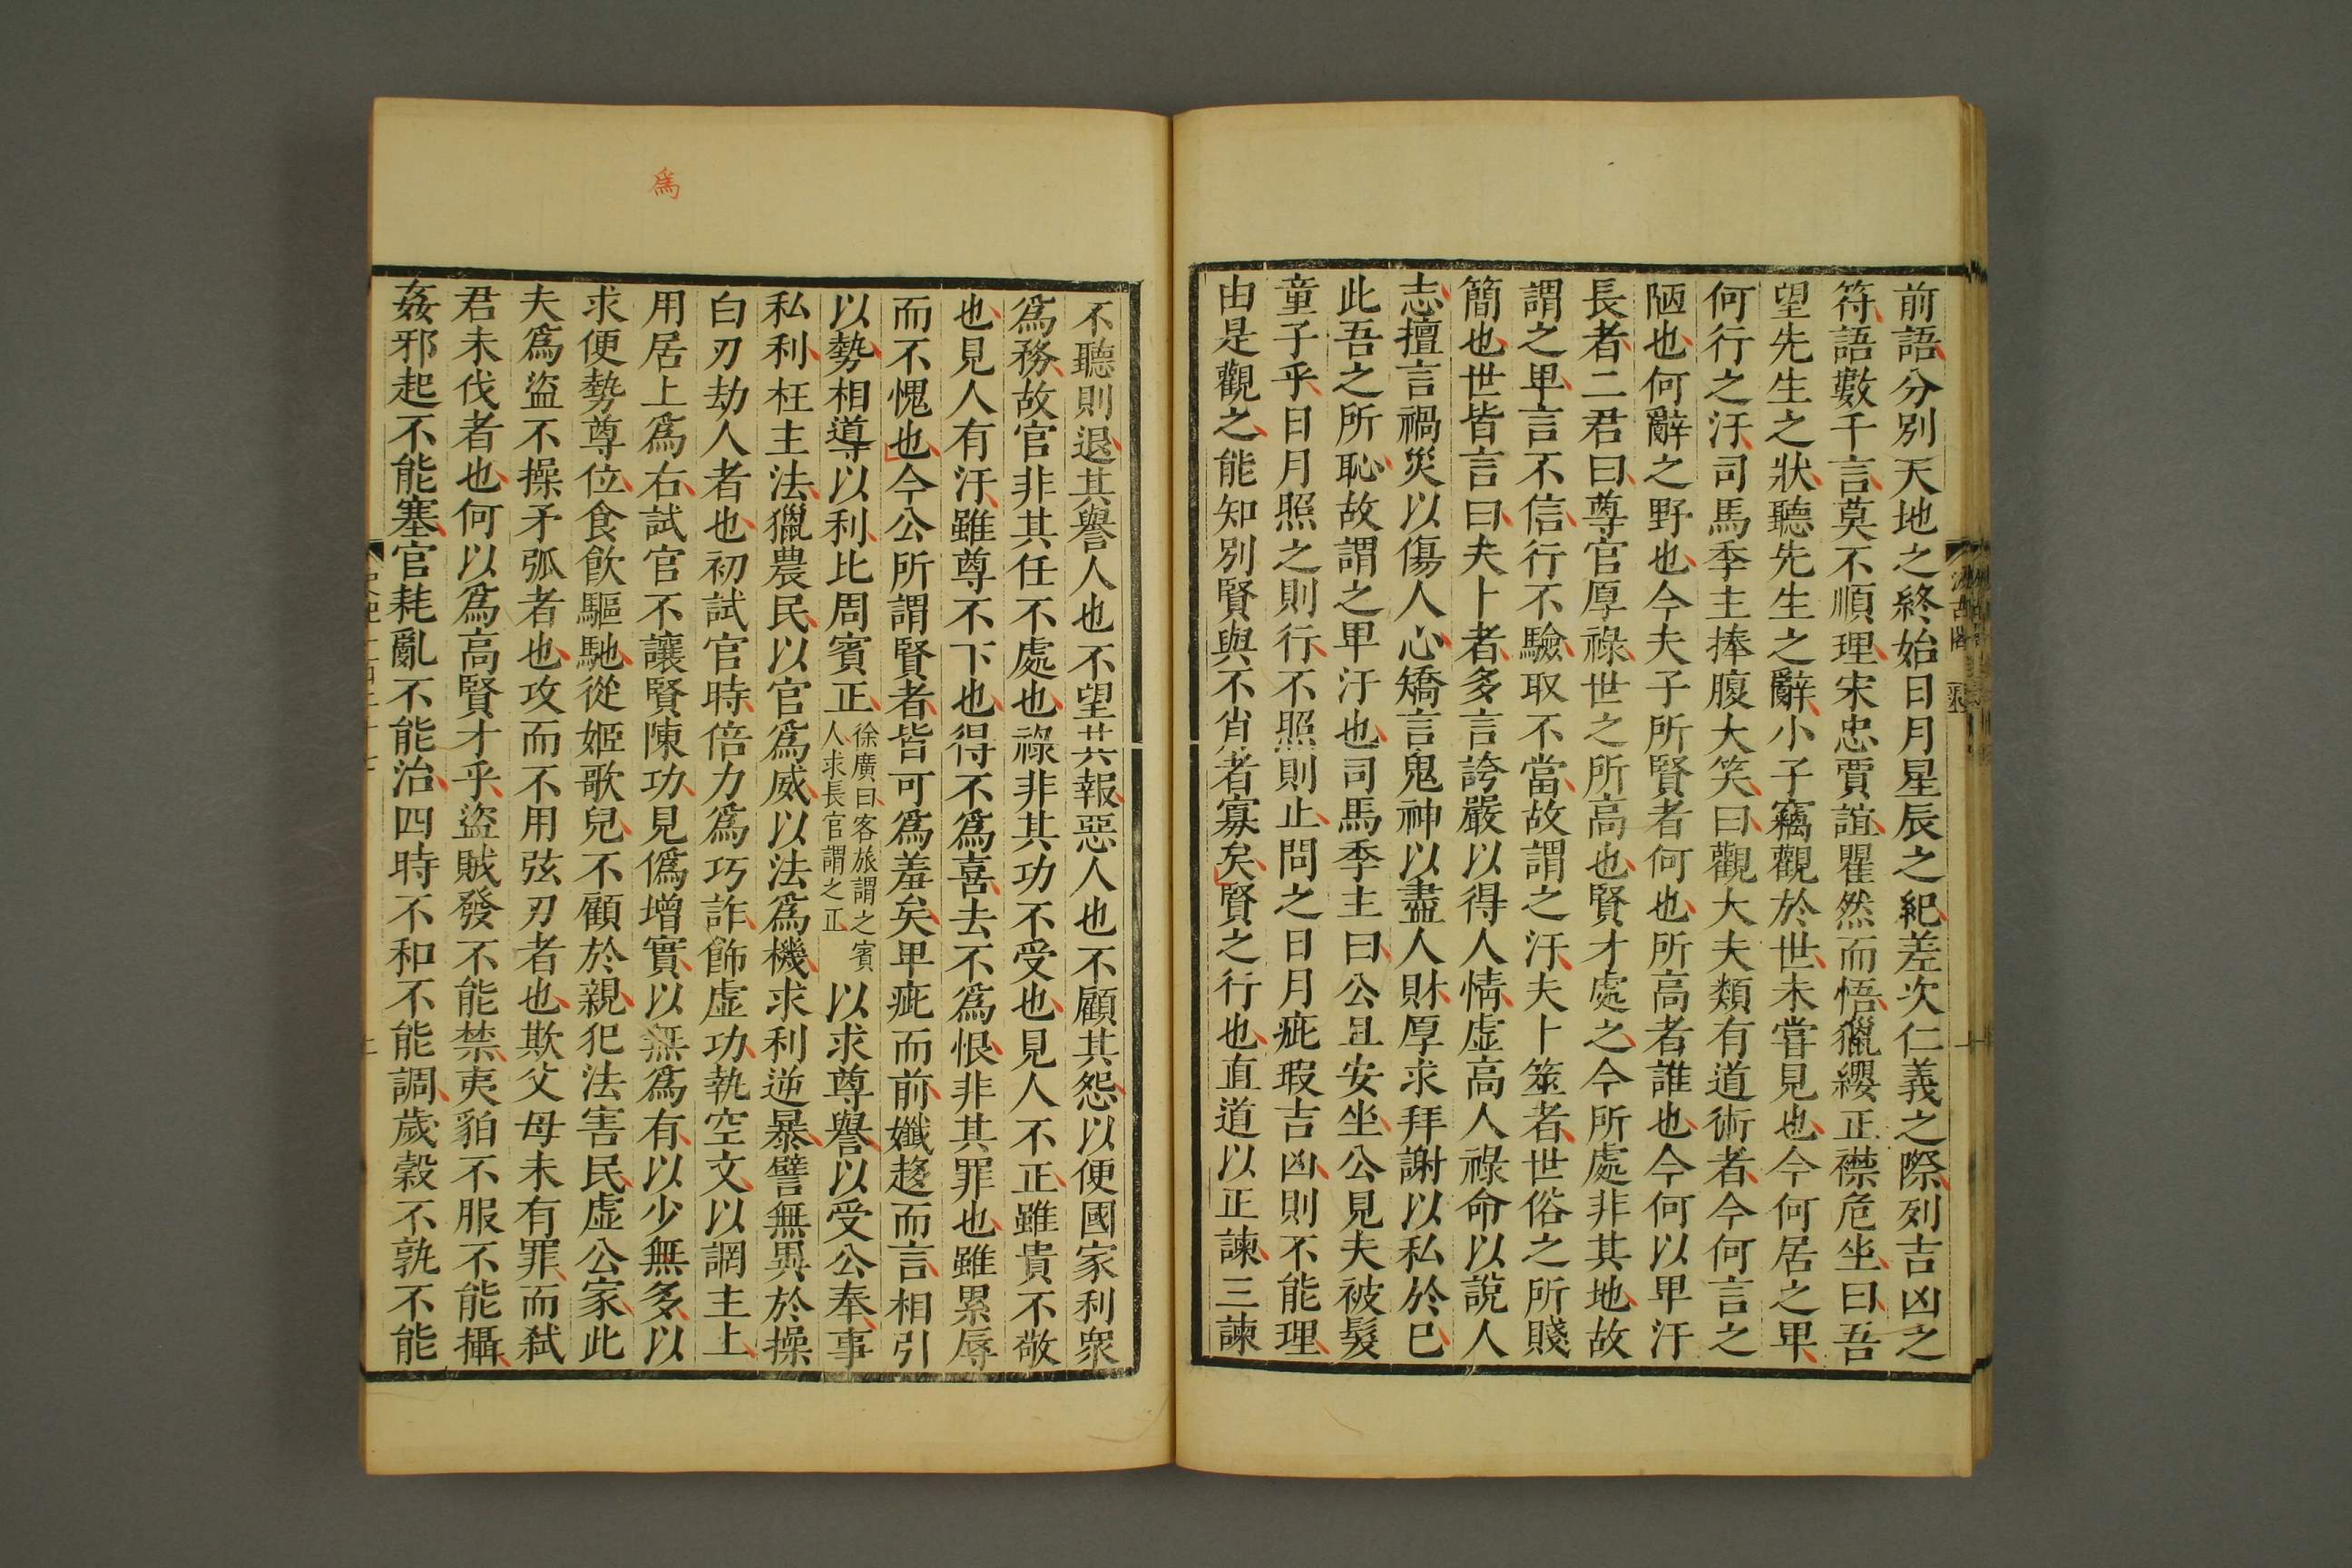 前語分別天地之終始日月星辰之紀差次仁義之際列吉凶之
符語數千言莫不順理宋忠賈誼瞿然而悟獵纓正襟危坐曰吾
望先生之狀聽先生之辭小子竊觀於世未嘗見也今何居之卑
何行之汙司馬季主捧腹大笑曰觀大夫類有道術者今何言之
陋也何辭之野也今夫子所賢者何也所高者誰也今何以卑汙
長者二君曰尊官厚祿世之所高也賢才處之今所處非其地故
謂之卑言不信行不驗取不當故謂之汙夫卜筮者世俗之所賤
簡也世皆言曰夫卜者多言誇嚴以得人情虛高人祿命以說人
志擅言禍災以傷人心矯言鬼神以盡人財厚求拜謝以私於巳
此吾之所恥故謂之卑汙也司馬季主曰公且安坐公見夫被髮
童子乎日月照之則行不照則止問之日月疵瑕吉凶則不能理
由是觀之能知別賢與不肖者寡矣賢之行也直道以正諫三諫
不聽則退其譽人也不望其報惡人也不顧其怨以便國家利衆
爲務故官非其任不處也祿非其功不受也見人不正雖貴不敬
也見人有汙雖尊不下也得不爲喜去不爲恨非其罪也雖累辱
而不愧也今公所謂賢者皆可爲羞矣卑疵而前孅趨而言相引
以勢相導以利比周賓正
徐廣曰客旅謂之賓
人求長官謂之正
以求尊譽以受公奉事
私利枉主法獵農民以官爲威以法爲機求利逆暴譬無異於操
白刃劫人者也初試官時倍力爲巧詐飾虛功執空文以誷主上
用居上爲右試官不讓賢陳功見僞增實以無爲有以少無多以
求便勢尊位食飲驅馳從姬歌兒不顧於親犯法害民虛公家此
夫爲盜不操矛弧者也攻而不用弦刃者也欺父母未有罪而弒
君未伐者也何以爲高賢才乎盜賊發不能禁夷貊不服不能攝
姦邪起不能塞官耗亂不能治四時不和不能調歲穀不孰不能
爲